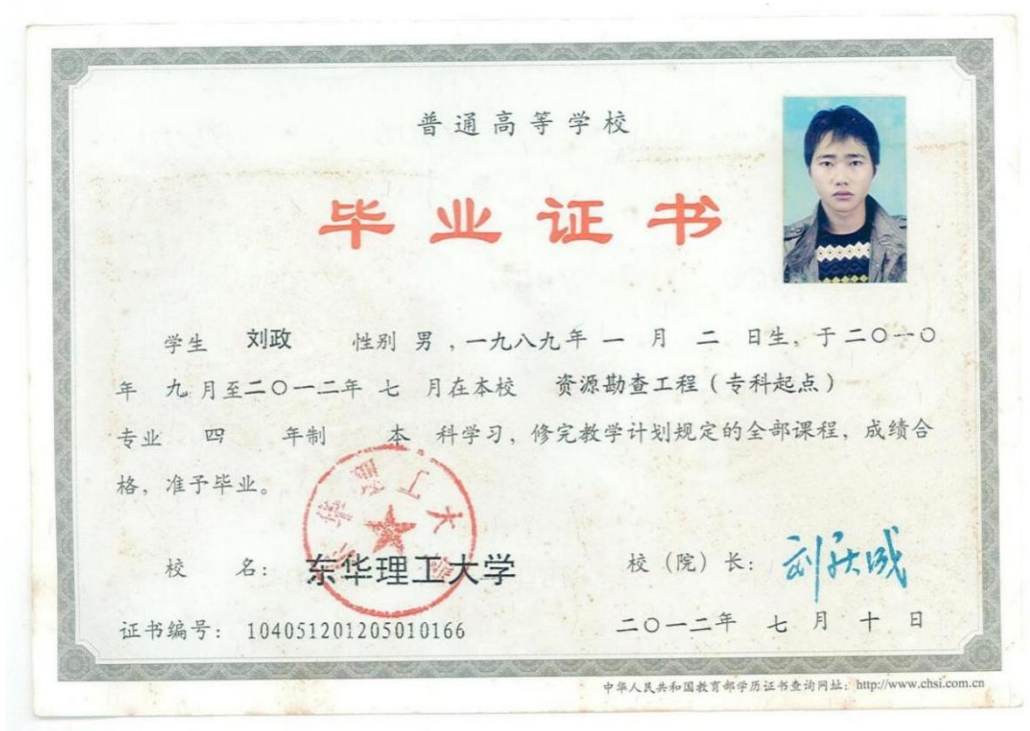 普通高等学校
毕业证书
学生 刘政 性别 男 , 一九八九年 一 月 二 日生, 于二〇一〇
年 九 月至二〇一二年 七 月在本校 资源勘查工程（专科起点）
专业 四 年制 本 科学习, 修完教学计划规定的全部课程, 成绩合
格, 准予毕业。
东华理工大学
校 名: 东华理工大学 校（院）长: 刘庆成
证书编号: 104051201205010166 二〇一二年 七 月 十 日
中华人民共和国教育部学历证书查询网址: http://www.chsi.com.cn